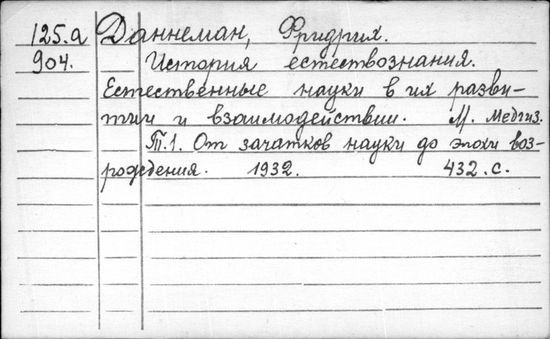 125.а Даннеман, Фридрих.
904. История естествознания.
Естественные науки в их разви-
тии и взаимодействии. М. Медгиз.
Т.1. От зачатков науки до эпохи воз-
рождения. 1932. 432.с.